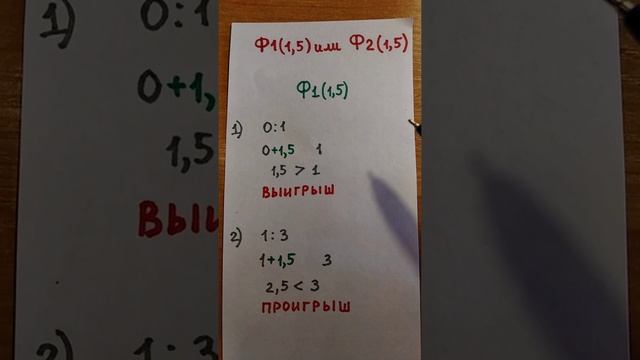 Ф1(1,5) или Ф2(1,5)
Ф1(1,5)
1) 0:1
0+1,5 1
1,5 > 1
ВЫИГРЫШ
2) 1:3
1+1,5 3
2,5 < 3
ПРОИГРЫШ